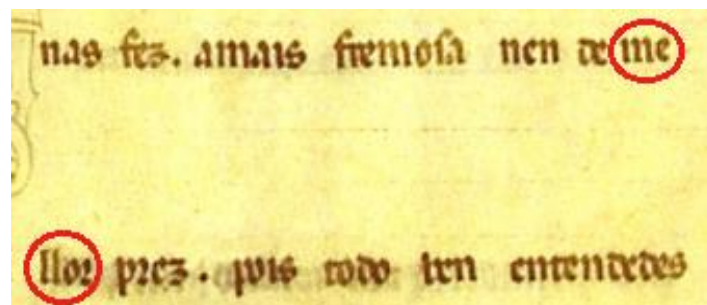 nas fez. amais fremosa nen de me
llor prez. pois todo ben entendedes